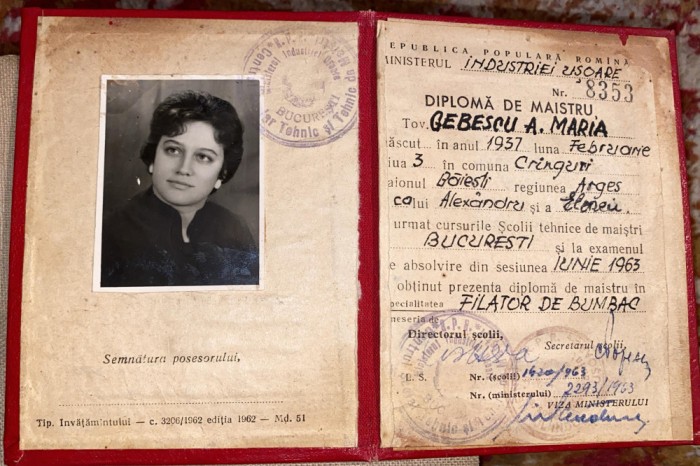 BUCUREȘTI
Semnătura posesorului,
Tip. Invățămîntului — c. 3206/1962 ediția 1962 — Md. 51
EPUBLICA POPULARĂ ROMÎNĂ
MINISTERUL INDUSTRIEI UȘOARE
Nr. 8353
DIPLOMĂ DE MAISTRU
Tov. GEBESCU A. MARIA
ăscut în anul 1937 luna Februarie
iua 3 în comuna Crînguri
aionul Găiești regiunea Argeș
lui Alexandru și a
urmat cursurile Școlii tehnice de maiștri
BUCUREȘTI și la examenul
e absolvire din sesiunea IUNIE 1963
obținut prezenta diplomă de maistru în
pecialitatea FILATOR DE BUMBAC
meseria de
Directorul școlii, Secretarul școlii,
L. S. Nr. (școlii) 1620/963
Nr. (ministerului) 2293/1963
VIZA MINISTERULUI